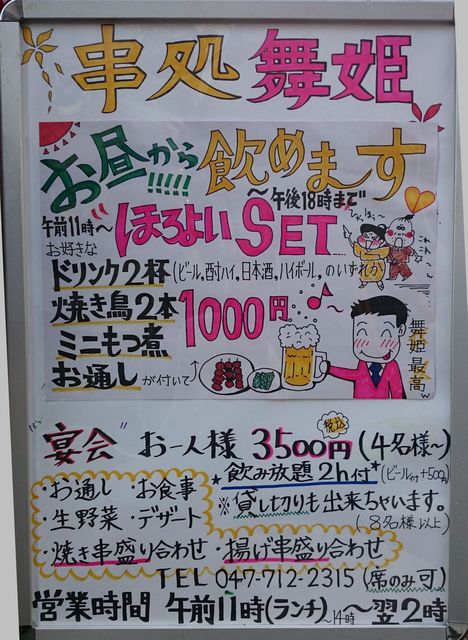 串処 舞姫
お昼から!!!!! 飲めます
～午後18時まで
午前11時～ "ほろよいSET"
お好きな
ドリンク2杯(ビール,酎ハイ,日本酒,ハイボール,のいずれか
焼き鳥2本
ミニもつ煮
1000円
お通しが付いて
舞姫最高w
"宴会" お一人様 3500円 税込 (4名様～)
★飲み放題2h付★(ビール付+500円)
・お通し ・お食事
・生野菜 ・デザート
※貸し切りも出来ちゃいます。
(8名様以上)
・焼き串盛り合わせ ・揚げ串盛り合わせ
TEL 047-712-2315 (席のみ可)
営業時間 午前11時(ランチ)～14時～翌2時